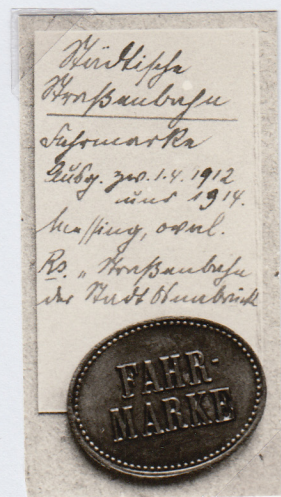 Städtische
Straßenbahn
Fahrmarke
Ausg. zw. 1.4.1912
und 1914.
Messing, oval.
Rs. „Straßenbahn
der Stadt Osnabrück
FAHR-
MARKE